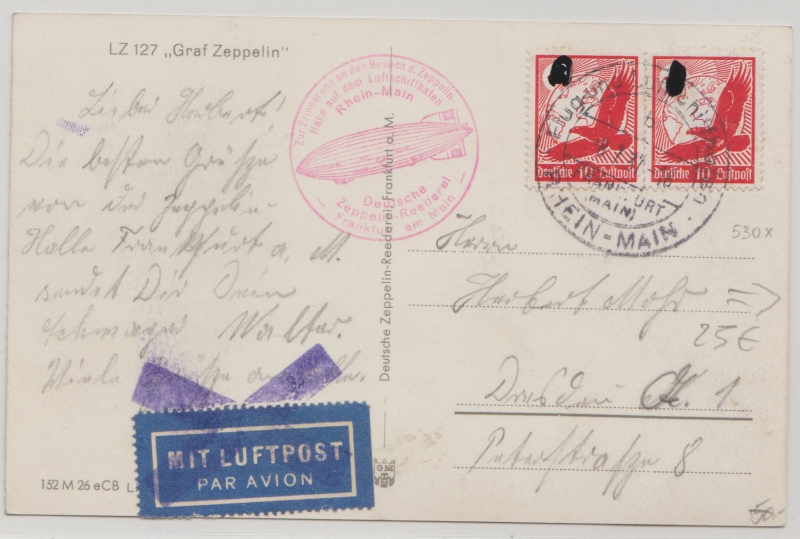 LZ 127 „Graf Zeppelin“
Lieber Herbert!
Die besten Grüße
von der Zeppelin-
Halle Frankfurt a. M.
sendet Dir Dein
Schwager Walter.
Viele Grüße an
Zur Erinnerung an den Besuch d. Zeppelin-
Halle auf dem Luftschiffhafen
Rhein-Main
Deutsche
Zeppelin-Reederei
Frankfurt am Main
Deutsche Zeppelin-Reederei, Frankfurt a. M.
Deutsche 10 Luftpost
Deutsche 10 Luftpost
Flug- u.
FRANKFURT
(MAIN)
RHEIN-MAIN
530x
Herrn
Herbert Mohr
25€
Dresden A. 1
Peterstraße 8
MIT LUFTPOST
PAR AVION
152 M 26 eCB L
OM
50.-